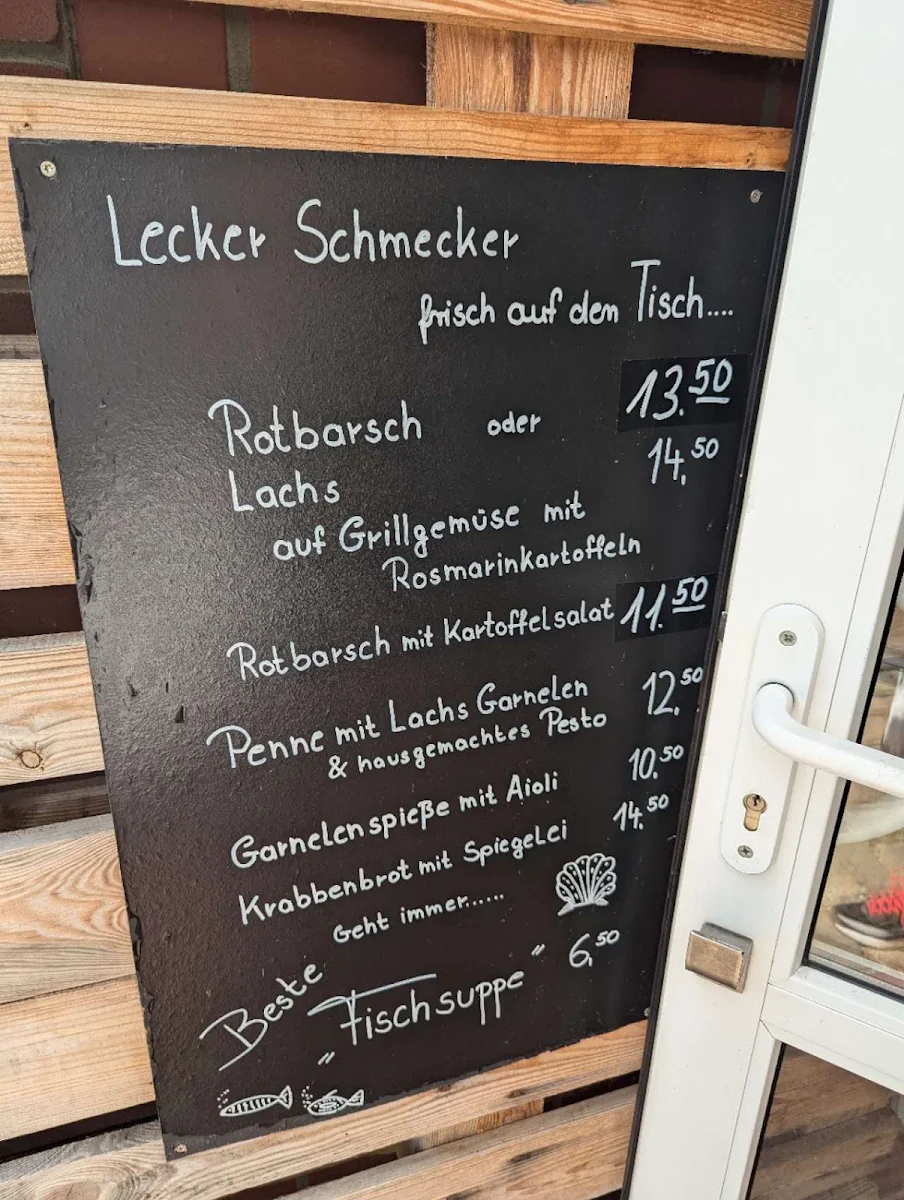 Lecker Schmecker
frisch auf dem Tisch....
Rotbarsch oder 13.50
Lachs 14,50
auf Grillgemüse mit
Rosmarinkartoffeln
Rotbarsch mit Kartoffelsalat 11.50
Penne mit Lachs Garnelen 12,50
& hausgemachtes Pesto
Garnelenspieße mit Aioli 10,50
Krabbenbrot mit Spiegelei 14,50
Geht immer......
Beste
"Fischsuppe" 6,50